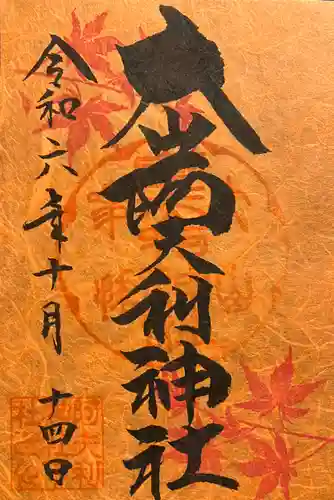 大山阿夫利神社
令和六年十月十四日